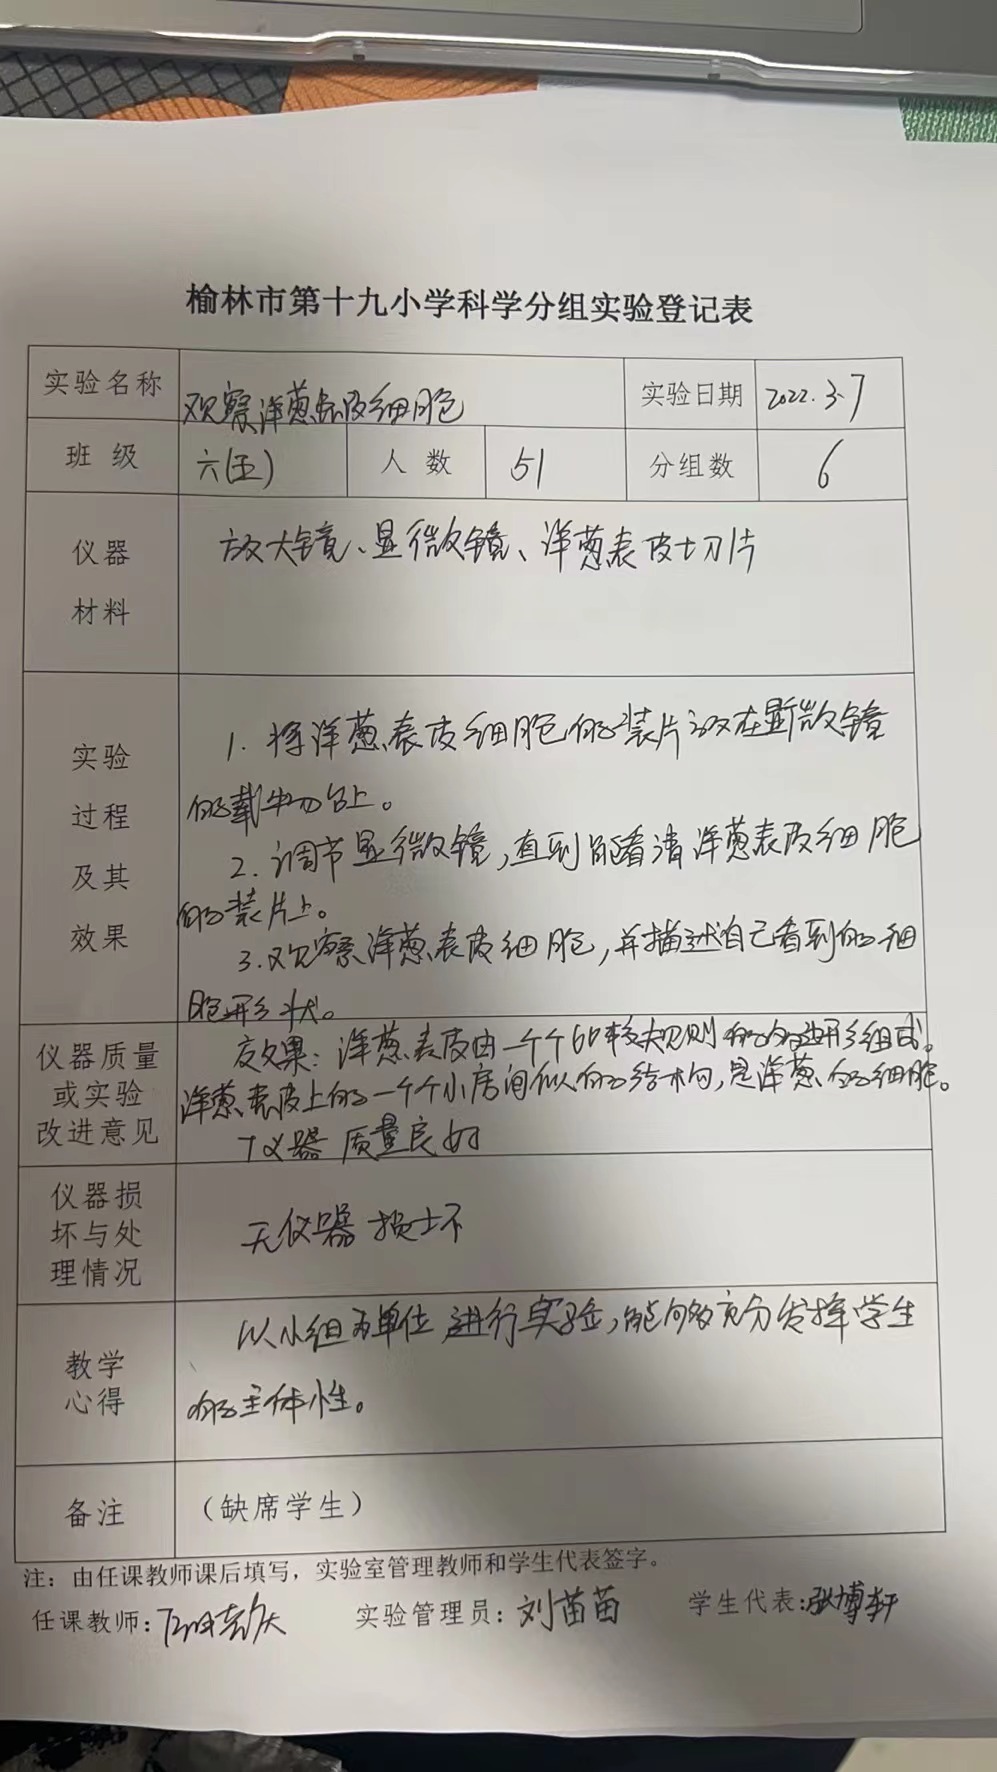 榆林市第十九小学科学分组实验登记表
实验名称 观察洋葱表皮细胞 实验日期 2022.3.7
班级 六(五) 人数 51 分组数 6
仪器材料 放大镜、显微镜、洋葱表皮切片
实验过程及其效果
1.将洋葱表皮细胞的装片放在显微镜
的载物台上。
2.调节显微镜,直到能看清洋葱表皮细胞
的装片上。
3.观察洋葱表皮细胞,并描述自己看到的细
胞形状。
效果:洋葱表皮由一个个比较规则的边形组成。
洋葱表皮上的一个个小房间似的结构,是洋葱的细胞。
仪器质量或实验改进意见 仪器质量良好
仪器损坏与处理情况 无仪器损坏
教学心得 以小组为单位进行实验,能够充分发挥学生
的主体性。
备注 (缺席学生)
注:由任课教师课后填写,实验室管理教师和学生代表签字。
任课教师: 实验管理员:刘苗苗 学生代表:博轩